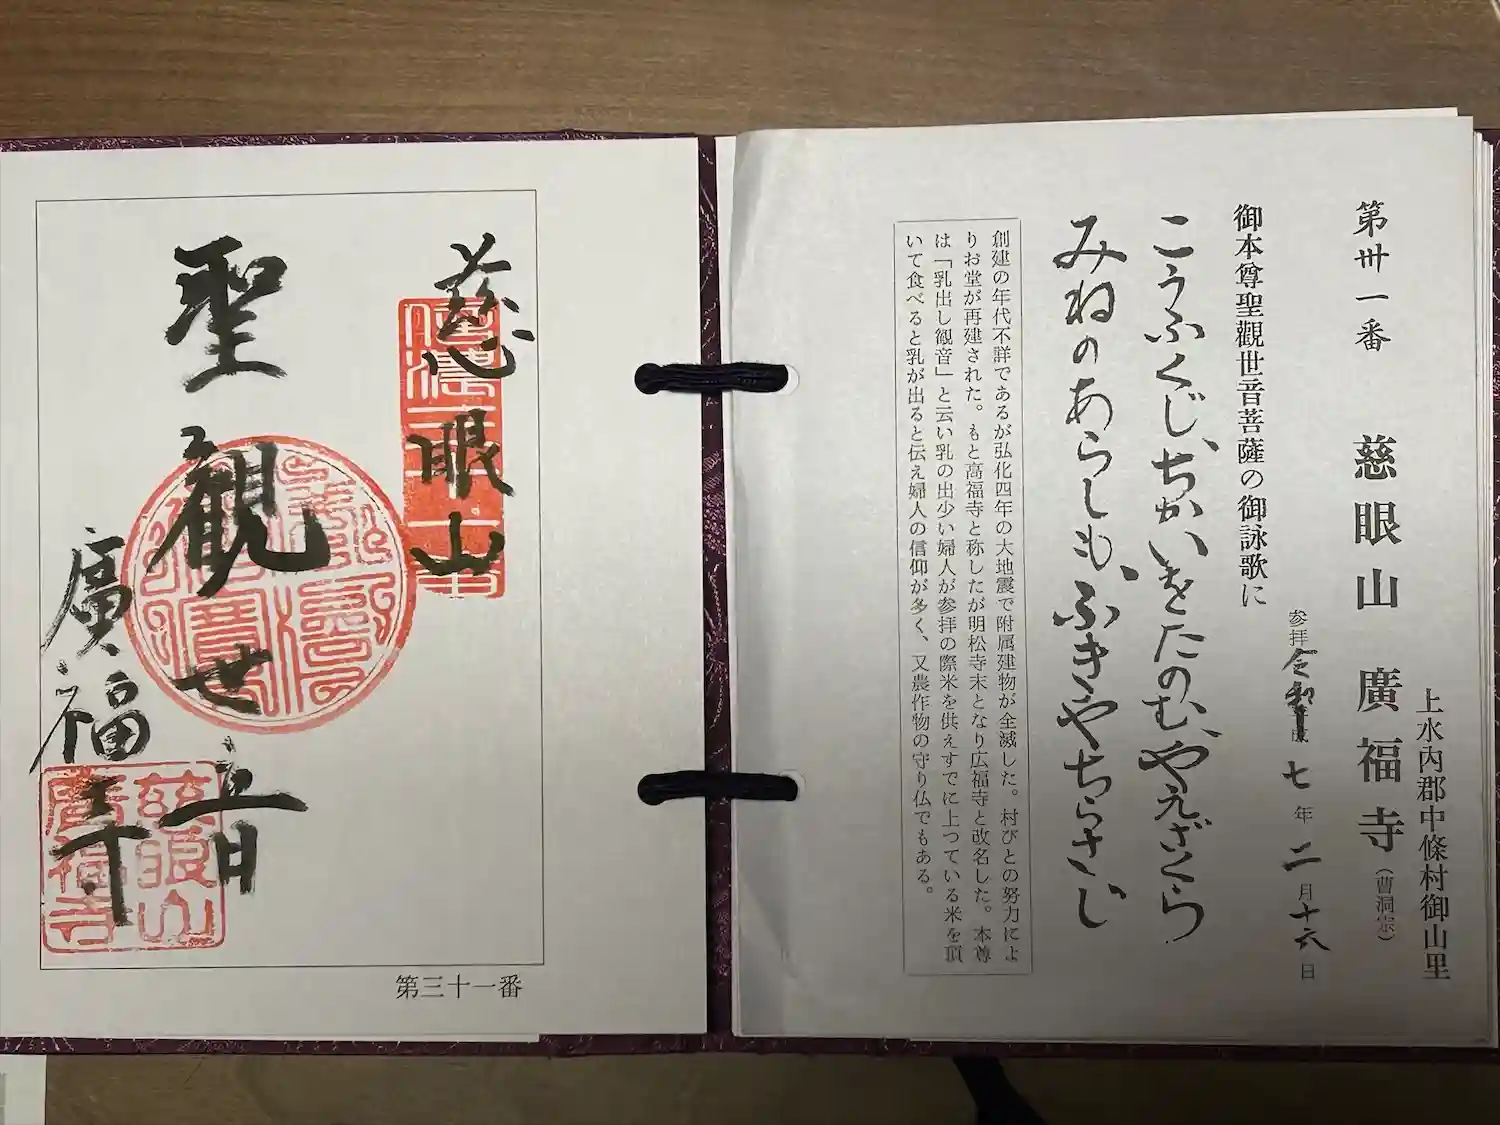 第卅一番 慈眼山 廣福寺(曹洞宗)
上水内郡中條村御山里
参拝 令和 七年 二月 十六日
御本尊聖觀世音菩薩の御詠歌に
こうふくじ、ちかいをたのむ、やえざくら
みねのあらしも、ふきやちらさじ
創建の年代不詳であるが弘化四年の大地震で附属建物が全滅した。村びとの努力によ
りお堂が再建された。もと高福寺と称したが明松寺末となり広福寺と改名した。本尊
は「乳出し観音」と云い乳の出少い婦人が参拝の際米を供えすでに上つている米を頂
いて食べると乳が出ると伝え婦人の信仰が多く、又農作物の守り仏でもある。
慈眼山
聖観世音
廣福寺
慈眼山
廣福寺
第三十一番